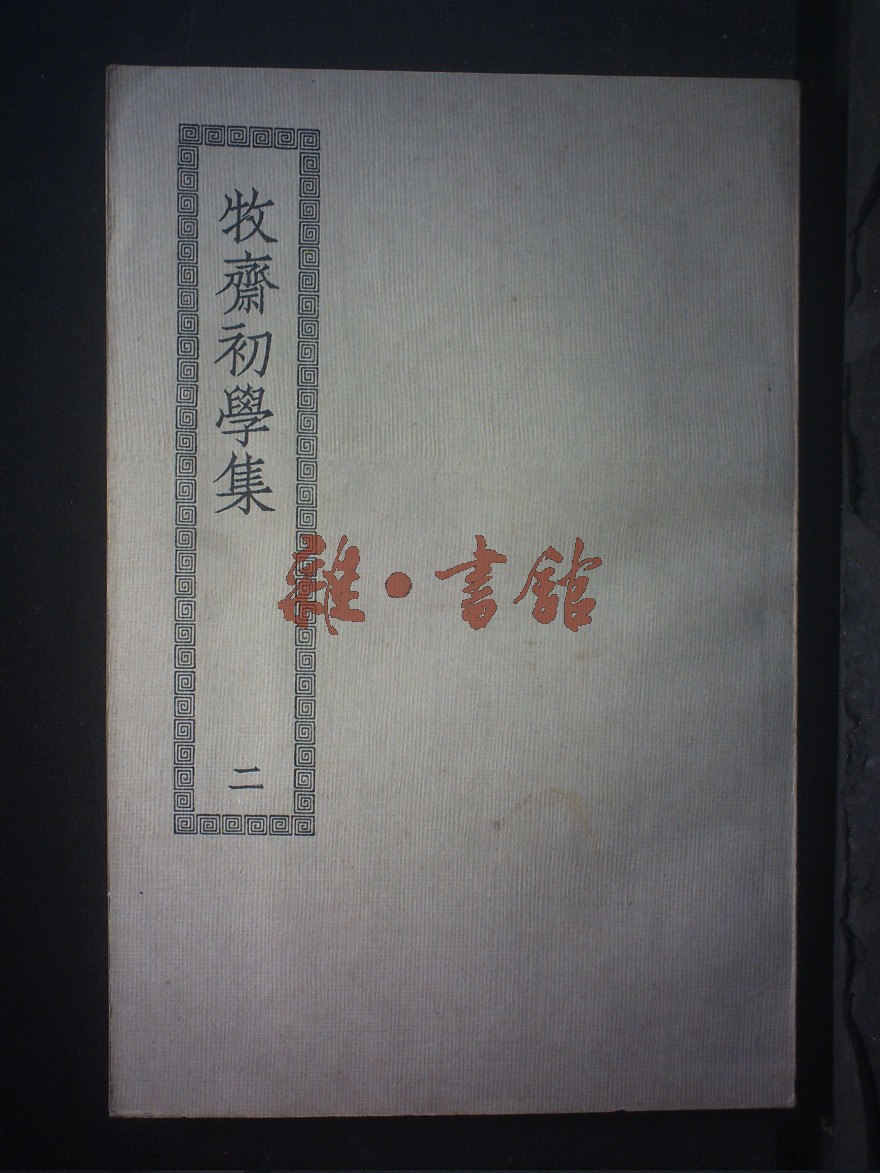 牧齋初學集
二
雜·書館